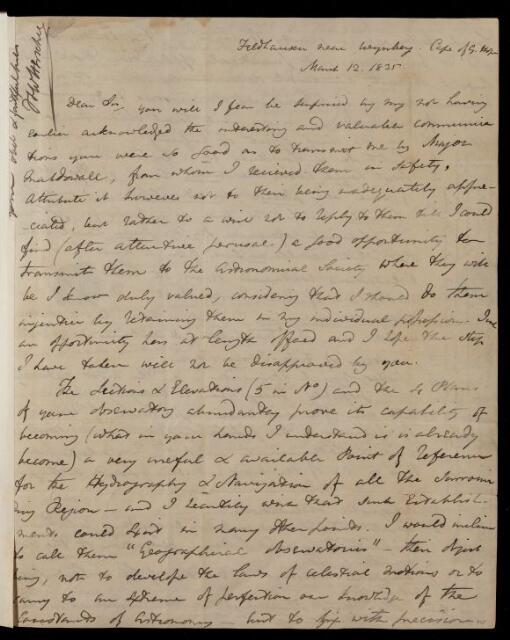 Feldhausen near Wynberg. Cape of G. Hope
March 12. 1835
Dear Sir, you will I fear be surprised by my not having
earlier acknowledged the interesting and valuable communica
tions you were so good as to transmit me by Major
Macdowall, from whom I received them in safety,
Attribute it however not to their being inadequately appre-
-ciated, but rather to a wish not to reply to them till I could
find (after attentive perusal) a good opportunity to
transmit them to the Astronomical Society where they will
be I know duly valued, considering that I should do them
injustice by retaining them in my individual possession. Such
an opportunity has at length offered and I hope the step
I have taken will not be disapproved by you.
The Sections & Elevations (5 in No) and the 4 Plans
of your observatory abundantly prove its capability of
becoming (what in your hands I understand it is already
become) a very useful & available Point of Reference
for the Hydrography & Navigation of all the surroun
ding Region – and I heartily wish that such Establish-
ments could exist in many other points. I would incline
to call them "Geographical observatories" – their object
being, not to develope the laws of celestial motions or to
carry to an extreme of perfection our knowledge of the
Constants of Astronomy but to fix with precision
your obt & faithful
JFW Herschel